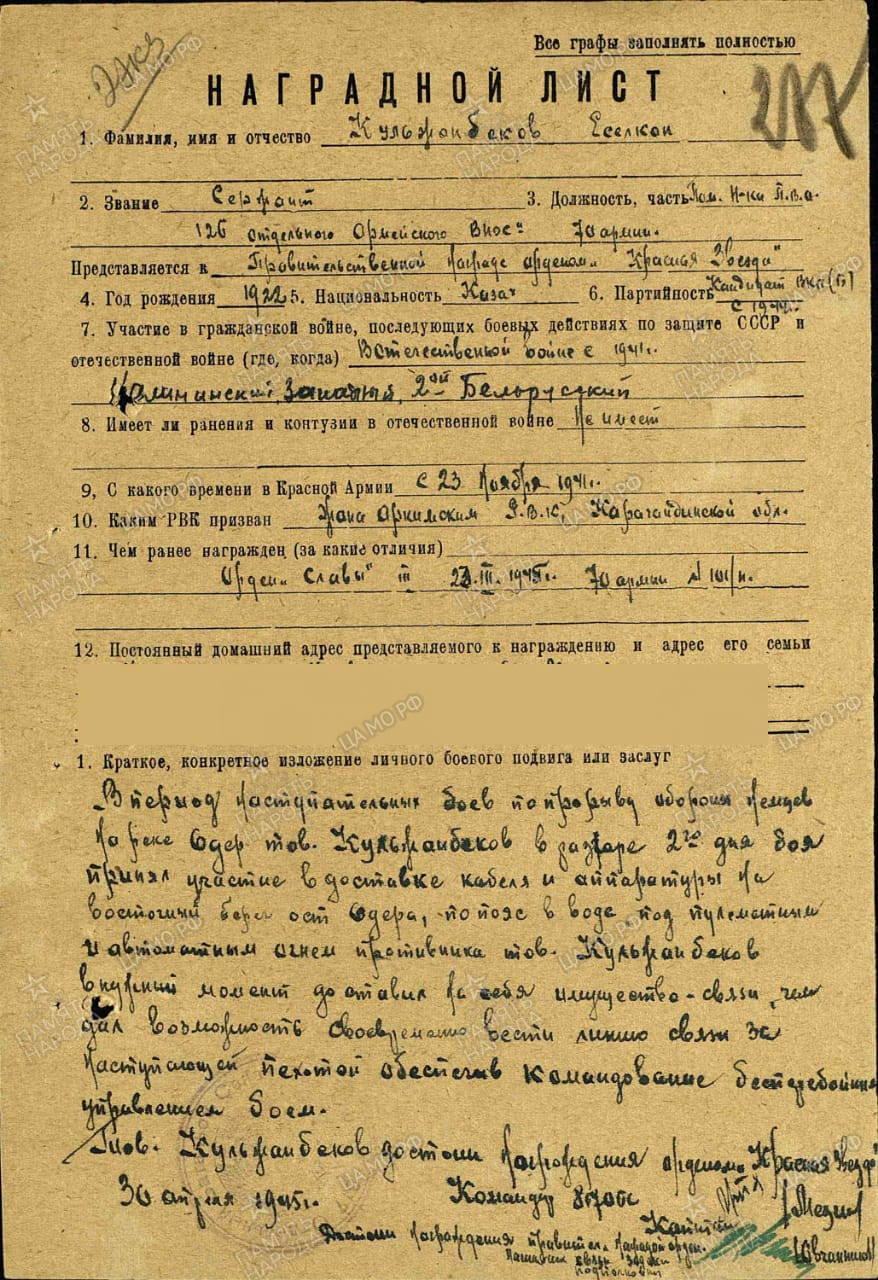 Все графы заполнять полностью
НАГРАДНОЙ ЛИСТ
1. Фамилия, имя и отчество Кульжанбеков Еселкан
2. Звание Сержант 3. Должность, часть Пом. Н-ка П.В.О.
126 отдельного Армейского Внос" 70 армии.
Представляется к Правительственной награде орденом „Красная Звезда"
4. Год рождения 1922 5. Национальность Казах 6. Партийность Кандидат ВКП(б)
с 1944г.
7. Участие в гражданской войне, последующих боевых действиях по защите СССР и
отечественной войне (где, когда) В отечественной войне с 1941г.
Калининский, Западный, 2ой Белорусский
8. Имеет ли ранения и контузии в отечественной войне Не имеет
9, С какого времени в Красной Армии с 23 Ноября 1941г.
10. Каким РВК призван Жана Аркинским Р.В.К. Карагандинской обл.
11. Чем ранее награжден (за какие отличия)
Орден „Славы" III 23.III.1945г. 70 армии N 101/н.
12. Постоянный домашний адрес представляемого к награждению и адрес его семьи
1. Краткое, конкретное изложение личного боевого подвига или заслуг
В период наступательных боев по прорыву обороны немцев
на реке Одер тов. Кульжанбеков в разгаре 2го дня боя
принял участие в доставке кабеля и аппаратуры на
восточный берег ост Одера, по пояс в воде под пулеметным
и автоматным огнем противника тов. Кульжанбеков
в нужный момент доставил на себя имущество-связи, чем
дал возможность своевременно вести линию связи за
наступающей пехотой обеспечив командование бесперебойным
управлением боем.
Тов. Кульжанбеков достоин награждения орденом „Красная Звезда"
30 апреля 1945г. Командир
Капитан
Достоин награждения правител. наградой орден.
Начальник связи 70 армии
подполковник
ПАМЯТЬ НАРОДА
ЦАМО.РФ